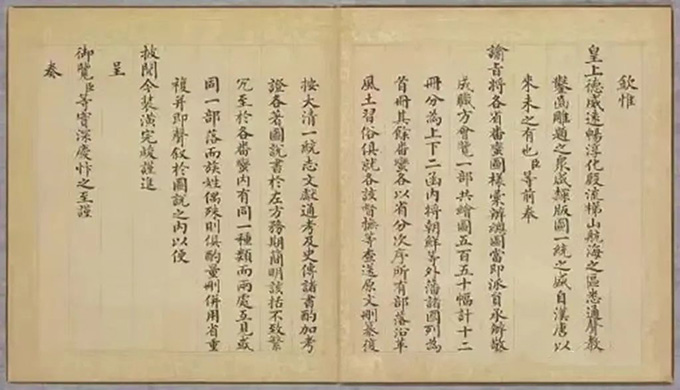 欽惟
皇上德威遠暢淳化殷流梯山航海之區悉通聲教
鑿齒雕題之衆咸隸版圖一統之盛自漢唐以
來未之有也臣等前奉
諭旨將各省番蠻圖樣彙辦圖當即派員承辦敬
成職方會覽一部共繪圖五百五十幅計十二
冊分為上下二函內將朝鮮等外藩諸國列為
首冊其餘番蠻各以省分次序所有部落沿革
風土習俗俱就各該督撫等查送原文刪纂復
按大清一統志文獻通考及史傳諸書酌加考
證各著圖說書於左方務期簡明該括不致繁
冗至於各番蠻內有同一種類而兩處互見或
同一部落而族姓偶殊則俱酌量刪併用省重
複并即聲敘於圖說之內以便
披閱今裝潢完竣謹進
呈
御覽臣等實深慶忭之至謹
奏